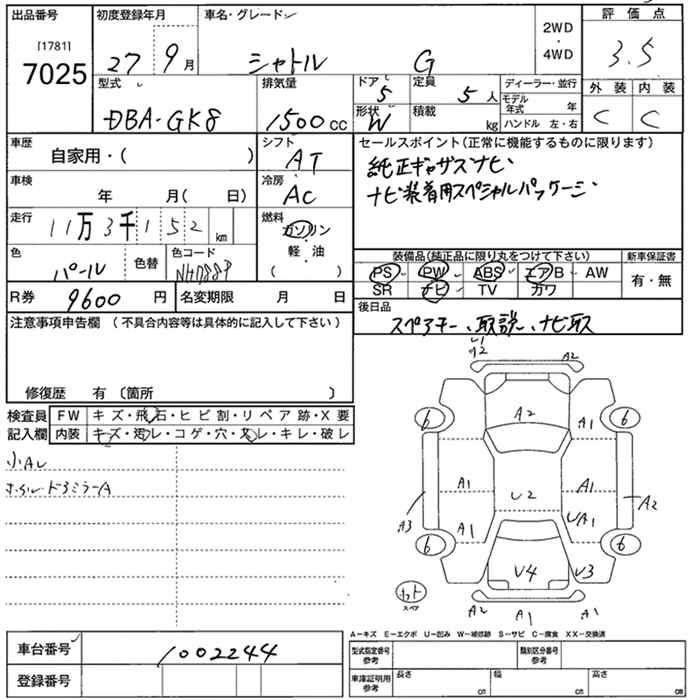 出品番号 初度登録年月 車名・グレード 2WD・4WD 評価点
[1781] 7025 27 9月 シャトル G 3.5
型式 排気量 ドア 5 定員 5人 ディーラー・並行 外装 内装
DBA-GK8 1500cc 形状 W 積載 kg モデル年式 年 C C
ハンドル 左・右
車歴 自家用・( ) シフト AT セールスポイント(正常に機能するものに限ります)
車検 年 月( 日) 冷房 AC 純正ギャザズナビ
ナビ装着用スペシャルパッケージ
走行 11万3千152km 燃料 ガソリン 軽・油 ( )
色 パール 色替 色コード NH0883P
装備品(純正品に限り丸をつけて下さい) 新車保証書
PS PW ABS エアB AW 有・無
SR ナビ TV カワ
R券 9600円 名変期限 月 日
後日品
スペアキー、取説、ナビ取
注意事項申告欄 (不具合内容等は具体的に記入して下さい)
修復歴 有 〔箇所 〕
検査員記入欄 FW キズ・飛石・ヒビ割・リペア跡・X要
内装 キズ・汚レ・コゲ・穴・スレ・キレ・破レ
小AU
A2
A2
6 A1 6
A1 U2 A1
A3 A2
A1 UA1
6 6
U4 U3
スペア
A2 A1 A1
A-キズ E-エクボ U-凹み W-補修跡 S-サビ C-腐食 XX-交換済
車台番号 1002244 型式指定番号 参考 類別区分番号 参考
登録番号 車庫証明用 参考 長さ cm 幅 cm 高さ cm